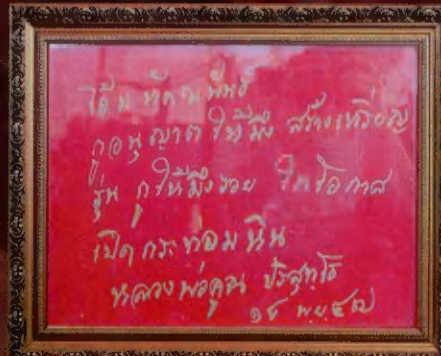 กูอนุญาต ให้มึง สร้างเหรียญ
รุ่น กูให้มึงรวย ในโอกาส
เปิด กระท่อมดิน
หลวงพ่อคูณ ปริสุทฺโธ
๑๕ พ.ย. ๔๗